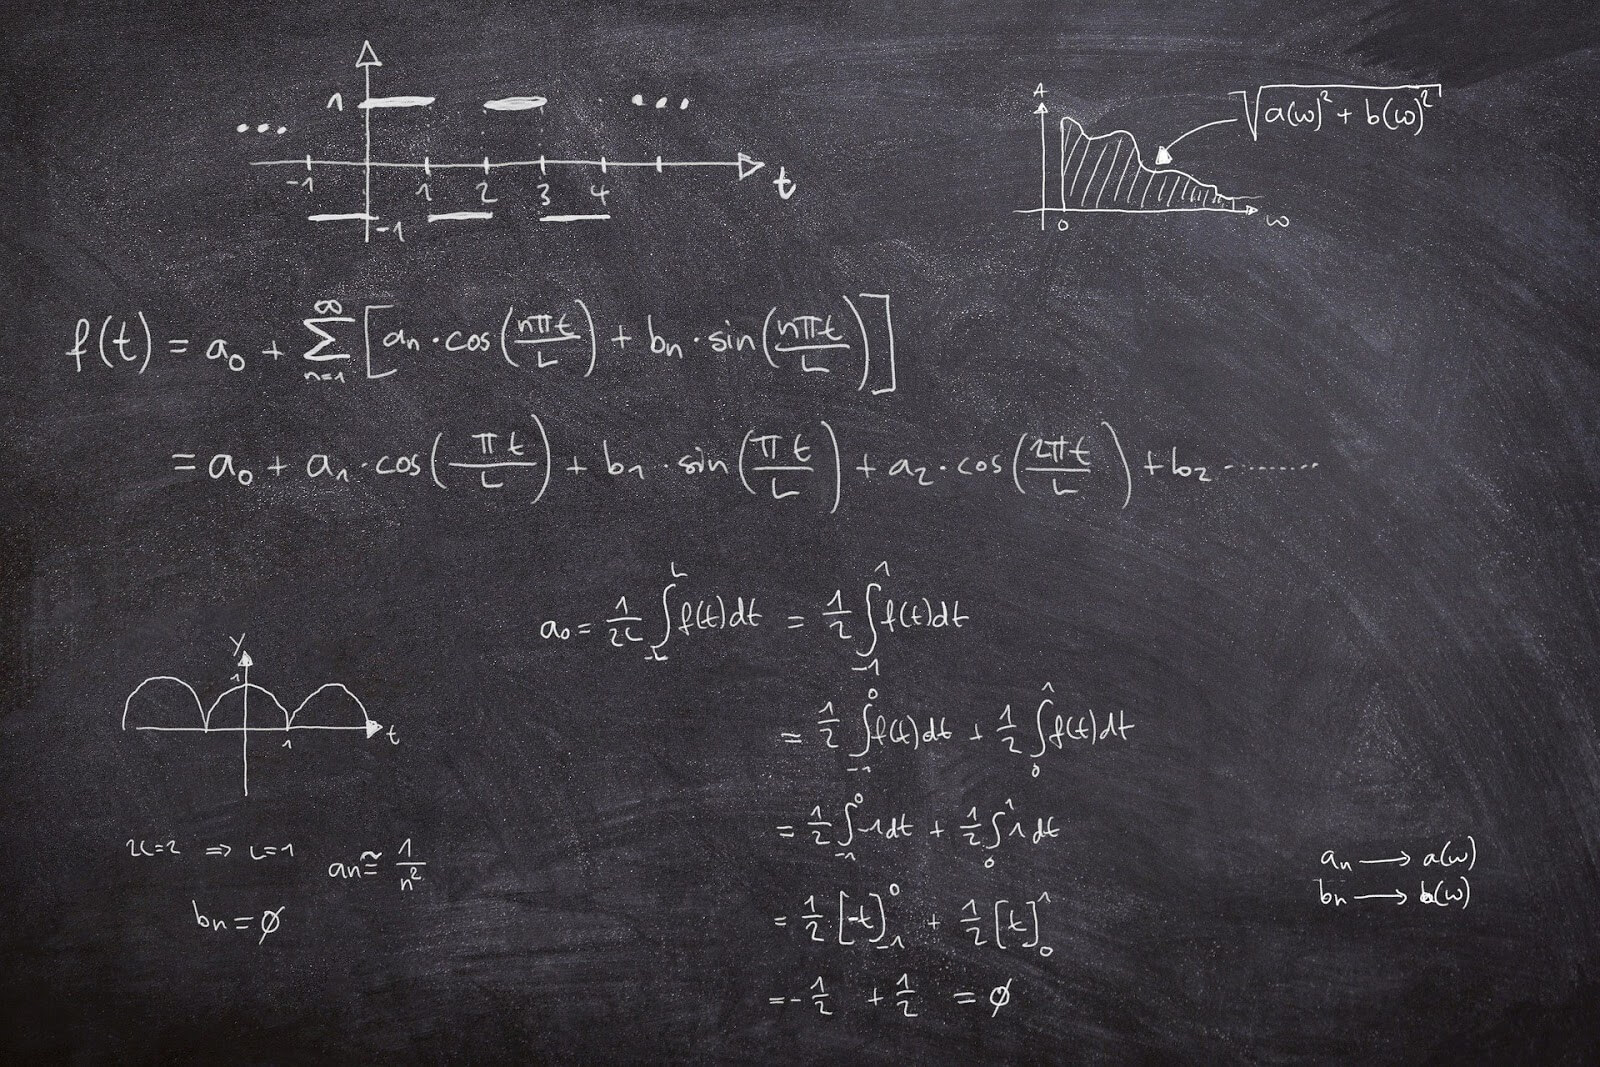 1 ... ...
-1 1 2 3 4 t
-1
A √(a(ω)² + b(ω)²)
0 ω
f(t) = a₀ + ∞∑n=1 [aₙ · cos(nπt/L) + bₙ · sin(nπt/L)]
= a₀ + a₁ · cos(πt/L) + b₁ · sin(πt/L) + a₂ · cos(2πt/L) + b₂ ·········
a₀ = 1/2L ∫_{-L}^{L} f(t)dt = 1/2 ∫_{-1}^{1} f(t)dt
= 1/2 ∫_{-1}^{0} f(t)dt + 1/2 ∫_{0}^{1} f(t)dt
= 1/2 ∫_{-1}^{0} -1dt + 1/2 ∫_{0}^{1} 1dt
= 1/2 [-t]_{-1}^{0} + 1/2 [t]_{0}^{1}
= -1/2 + 1/2 = ∅
y
1
1 t
2L=2 ⇒ L=1 aₙ ≅ 1/n²
bₙ = ∅
aₙ → a(ω)
bₙ → b(ω)